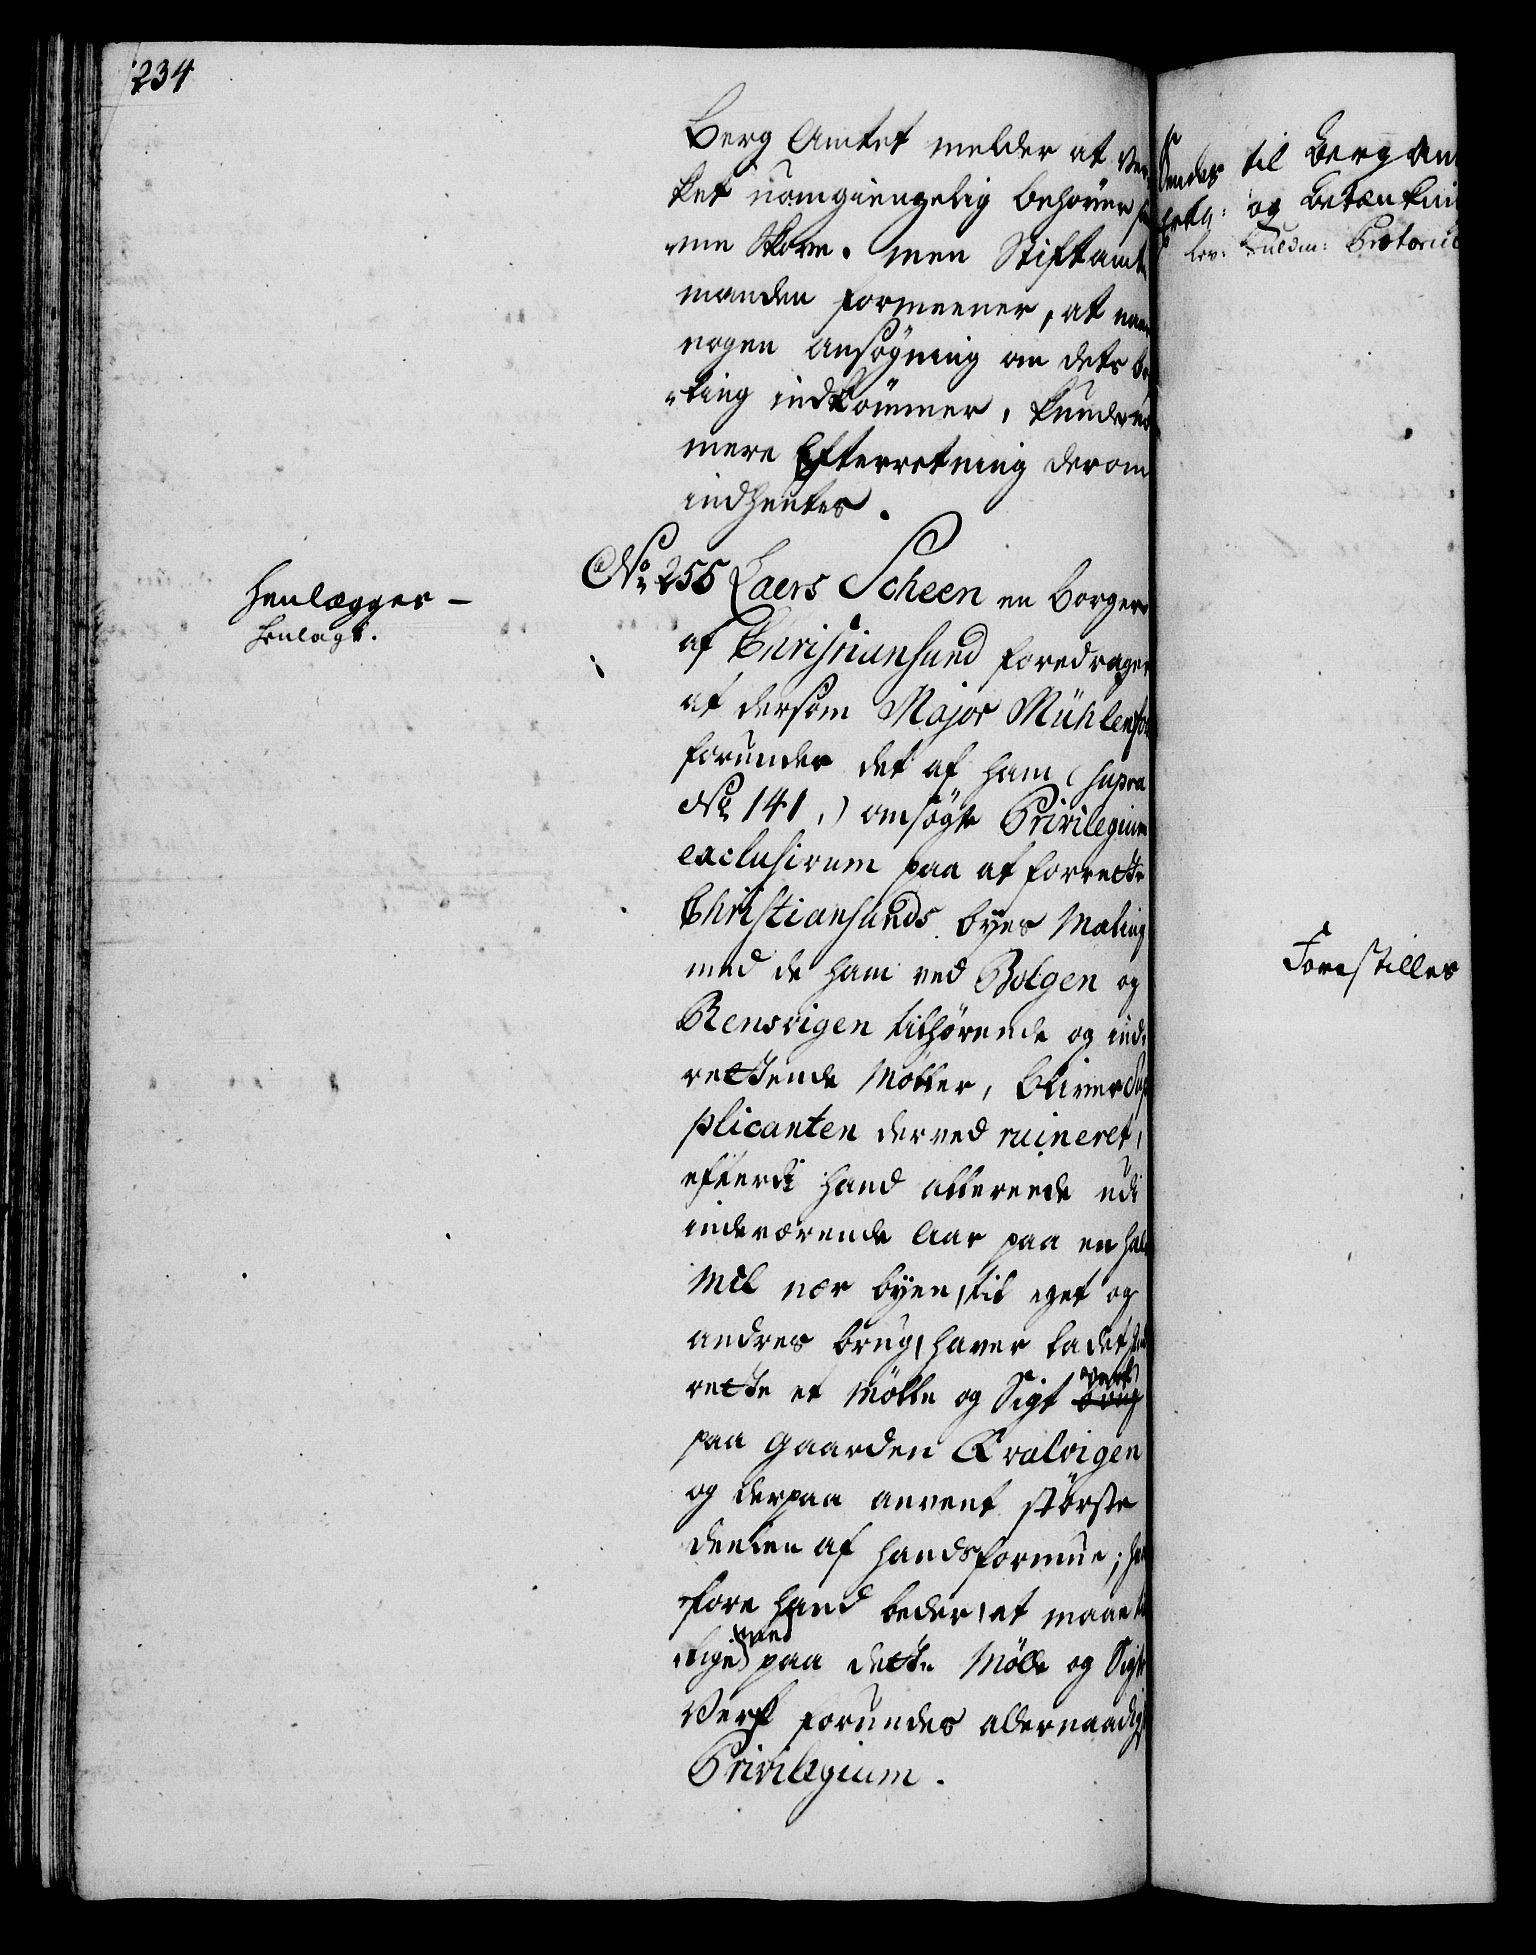 234
Berg Amtet melder at Ver-
ket uomgiengelig behøver
me Skove. men Stiftamt
manden formeener, at naar
nogen ansøgning om dets
king indkommer, kunde
mere Efterretning derom
indhentes.
No 255 Laers Scheen en borger
af Christiansund foredrager
at dersom Major Mühlenf
forundes det af ham (supra
No 141,) ansøgte Privilegium
exclusivum paa at forrette
Christiansunds byes Maling
med de ham ved Bolgen og
Rensvigen tilhørende og ind-
rettende Møller, bliver Sup
plicanten derved ruineret,
efterdi hand allereede udi
indeværende Aar paa en hal
Mil nær byen, til eget og
andres brug, haver ladet
rette et Mølle og Sigt verk brug
paa Gaarden Qvalvigen
og derpaa anvent største
deelen af hands formue;
fore hand beder, at maae
lige ved paa dette Mølle og Sigt
Verk forundes allernaadigst
Privilegium.
Henlægges -
Henlagt.
Sendes til Berg Am
Erkl: og Betænkni
Forestilles